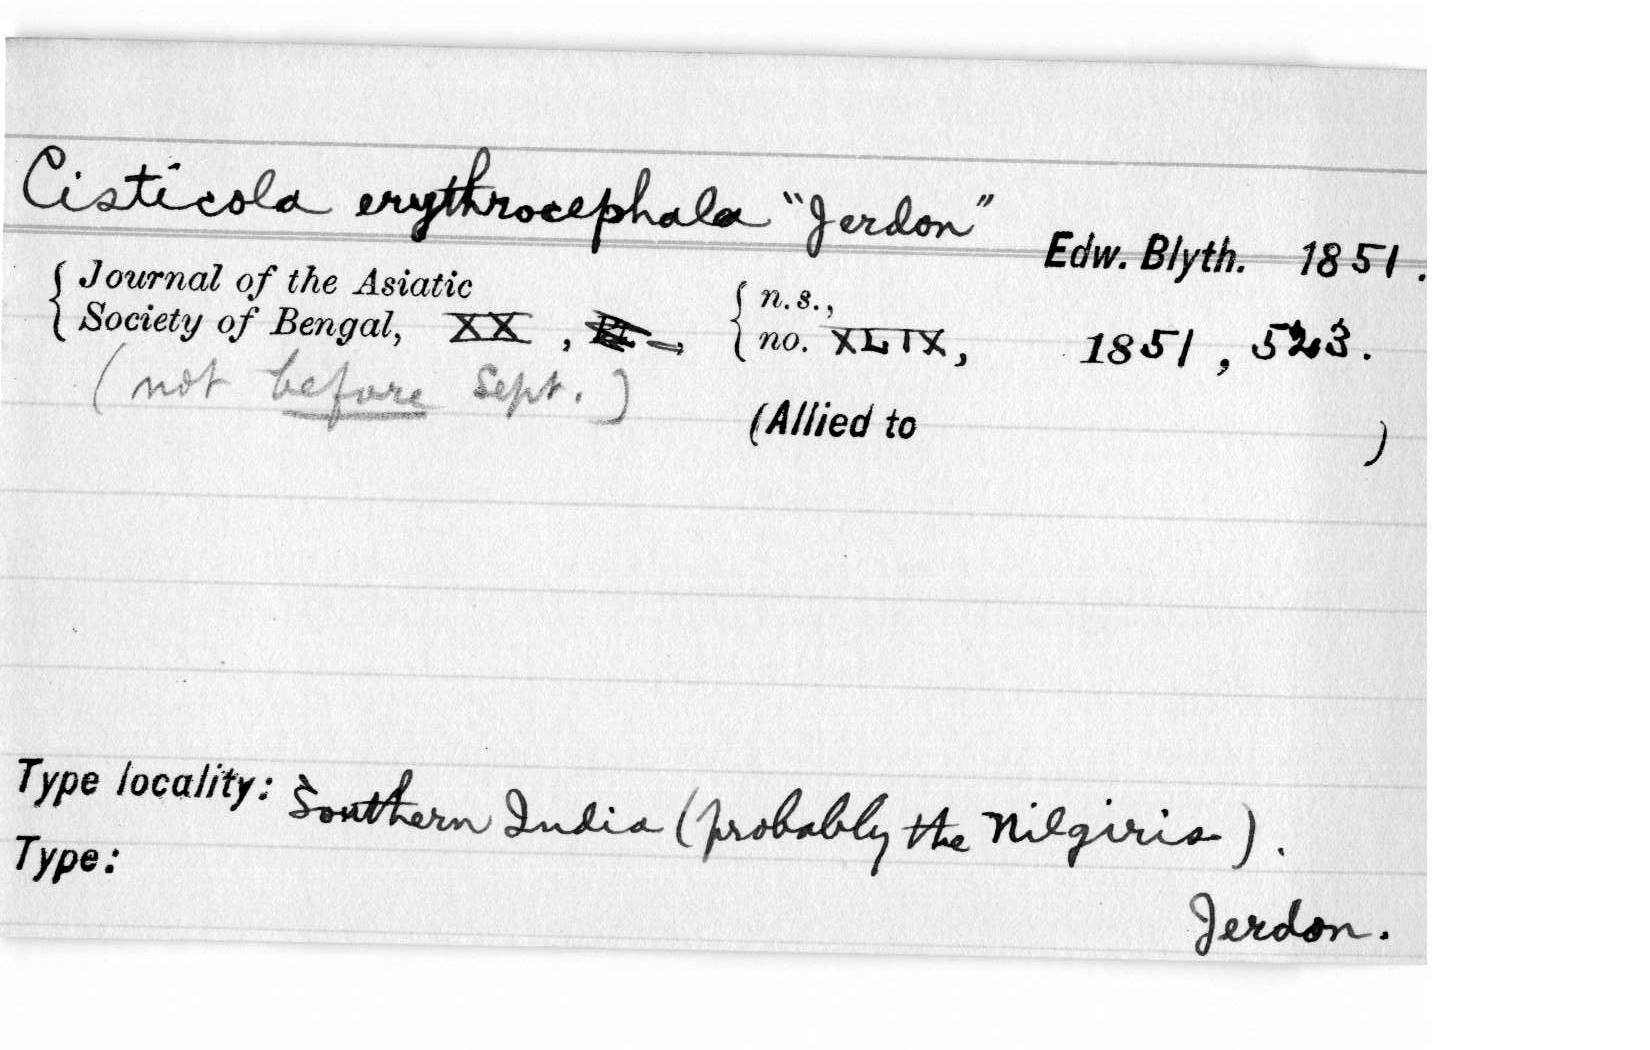 Cisticola erythrocephala "Jerdon"
Edw. Blyth. 1851.
Journal of the Asiatic
Society of Bengal, XX, n.s., no. XLIX, 1851, 523.
(not before Sept.)
(Allied to )
Type locality: Southern India (probably the Nilgiris).
Type:
Jerdon.